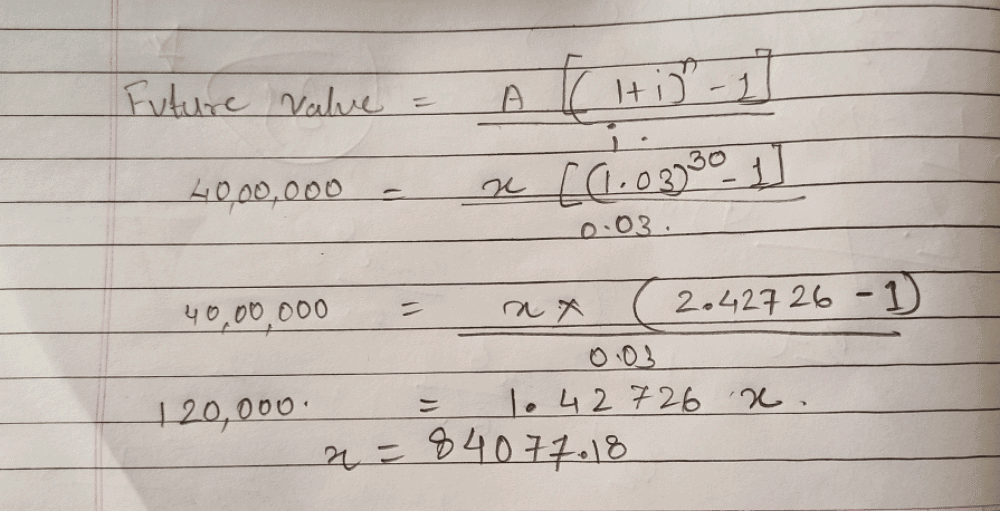 Future value = A [(1+i)^n - 1] / i.
40,00,000 = x [(1.03)^30 - 1] / 0.03.
40,00,000 = x × (2.42726 - 1) / 0.03
120,000. = 1.42726 x.
x = 84077.18